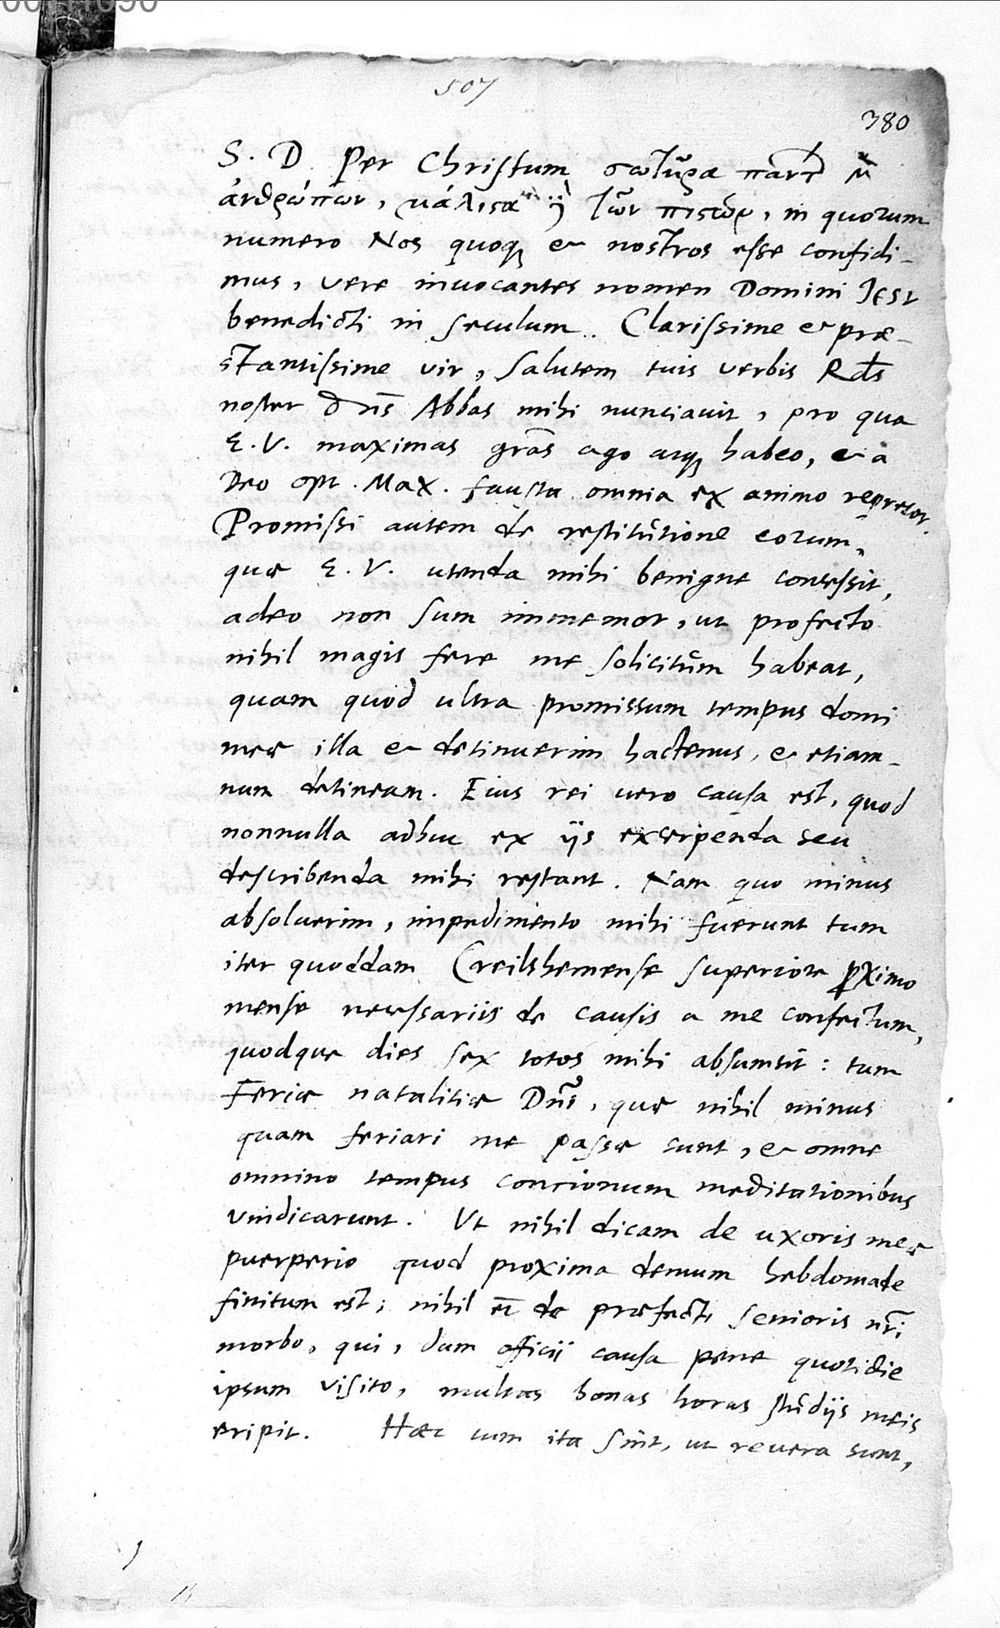 507
380
S. D. Per Christum σωτῆρα πάντων
ἀνθρώπων, μάλιστα τῶν πιστῶν, in quorum
numero Nos quoq et nostros esse confidi-
mus, vere invocantes nomen Domini Jesu
benedicti in seculum. Clarissime et præ-
stantissime vir, Salutem tuis verbis Rds
noster Dns Abbas mihi nunciavit, pro qua
E. V. maximas gras ago atq habeo, et a
Deo opt. Max. fausta omnia ex animo reprecor.
Promissi autem de restitutione eorum,
quæ E. V. utenda mihi benigne concessit,
adeo non sum immemor, ut profecto
nihil magis fere me solicitum habeat,
quam quod ultra promissum tempus domi
meæ illa et detinuerim hactenus, et etiam-
num detineam. Eius rei vero causa est, quod
nonnulla adhuc ex ijs excerpenda seu
describenda mihi restant. Nam quo minus
absolverim, impedimento mihi fuerunt tum
iter quoddam Creilshemense superiore pximo
mense necessariis de causis a me confectum,
quodque dies sex totos mihi absumsit: tum
Feriæ natalitiæ Dni, quæ nihil minus
quam feriari me passæ sunt, et omne
omnino tempus concionum meditationibus
vindicarunt. Ut nihil dicam de uxoris meæ
puerperio quod proxima demum hebdomade
finitum est; nihil et de præfecti senioris nri
morbo, qui, dum officij causa pene quotidie
ipsum visito, multas bonas horas studijs meis
eripit. Hæc cum ita sint, ut revera sunt,